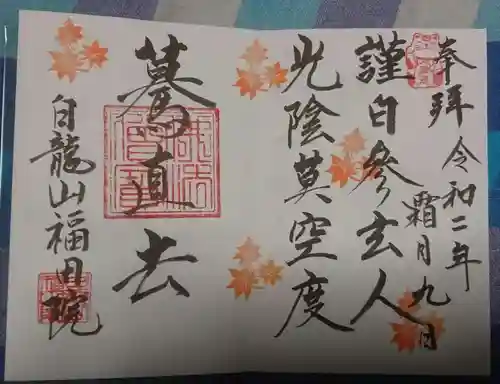 奉拝
令和二年
霜月九日
謹白參玄人
光陰莫空度
驀直去
白龍山福田院